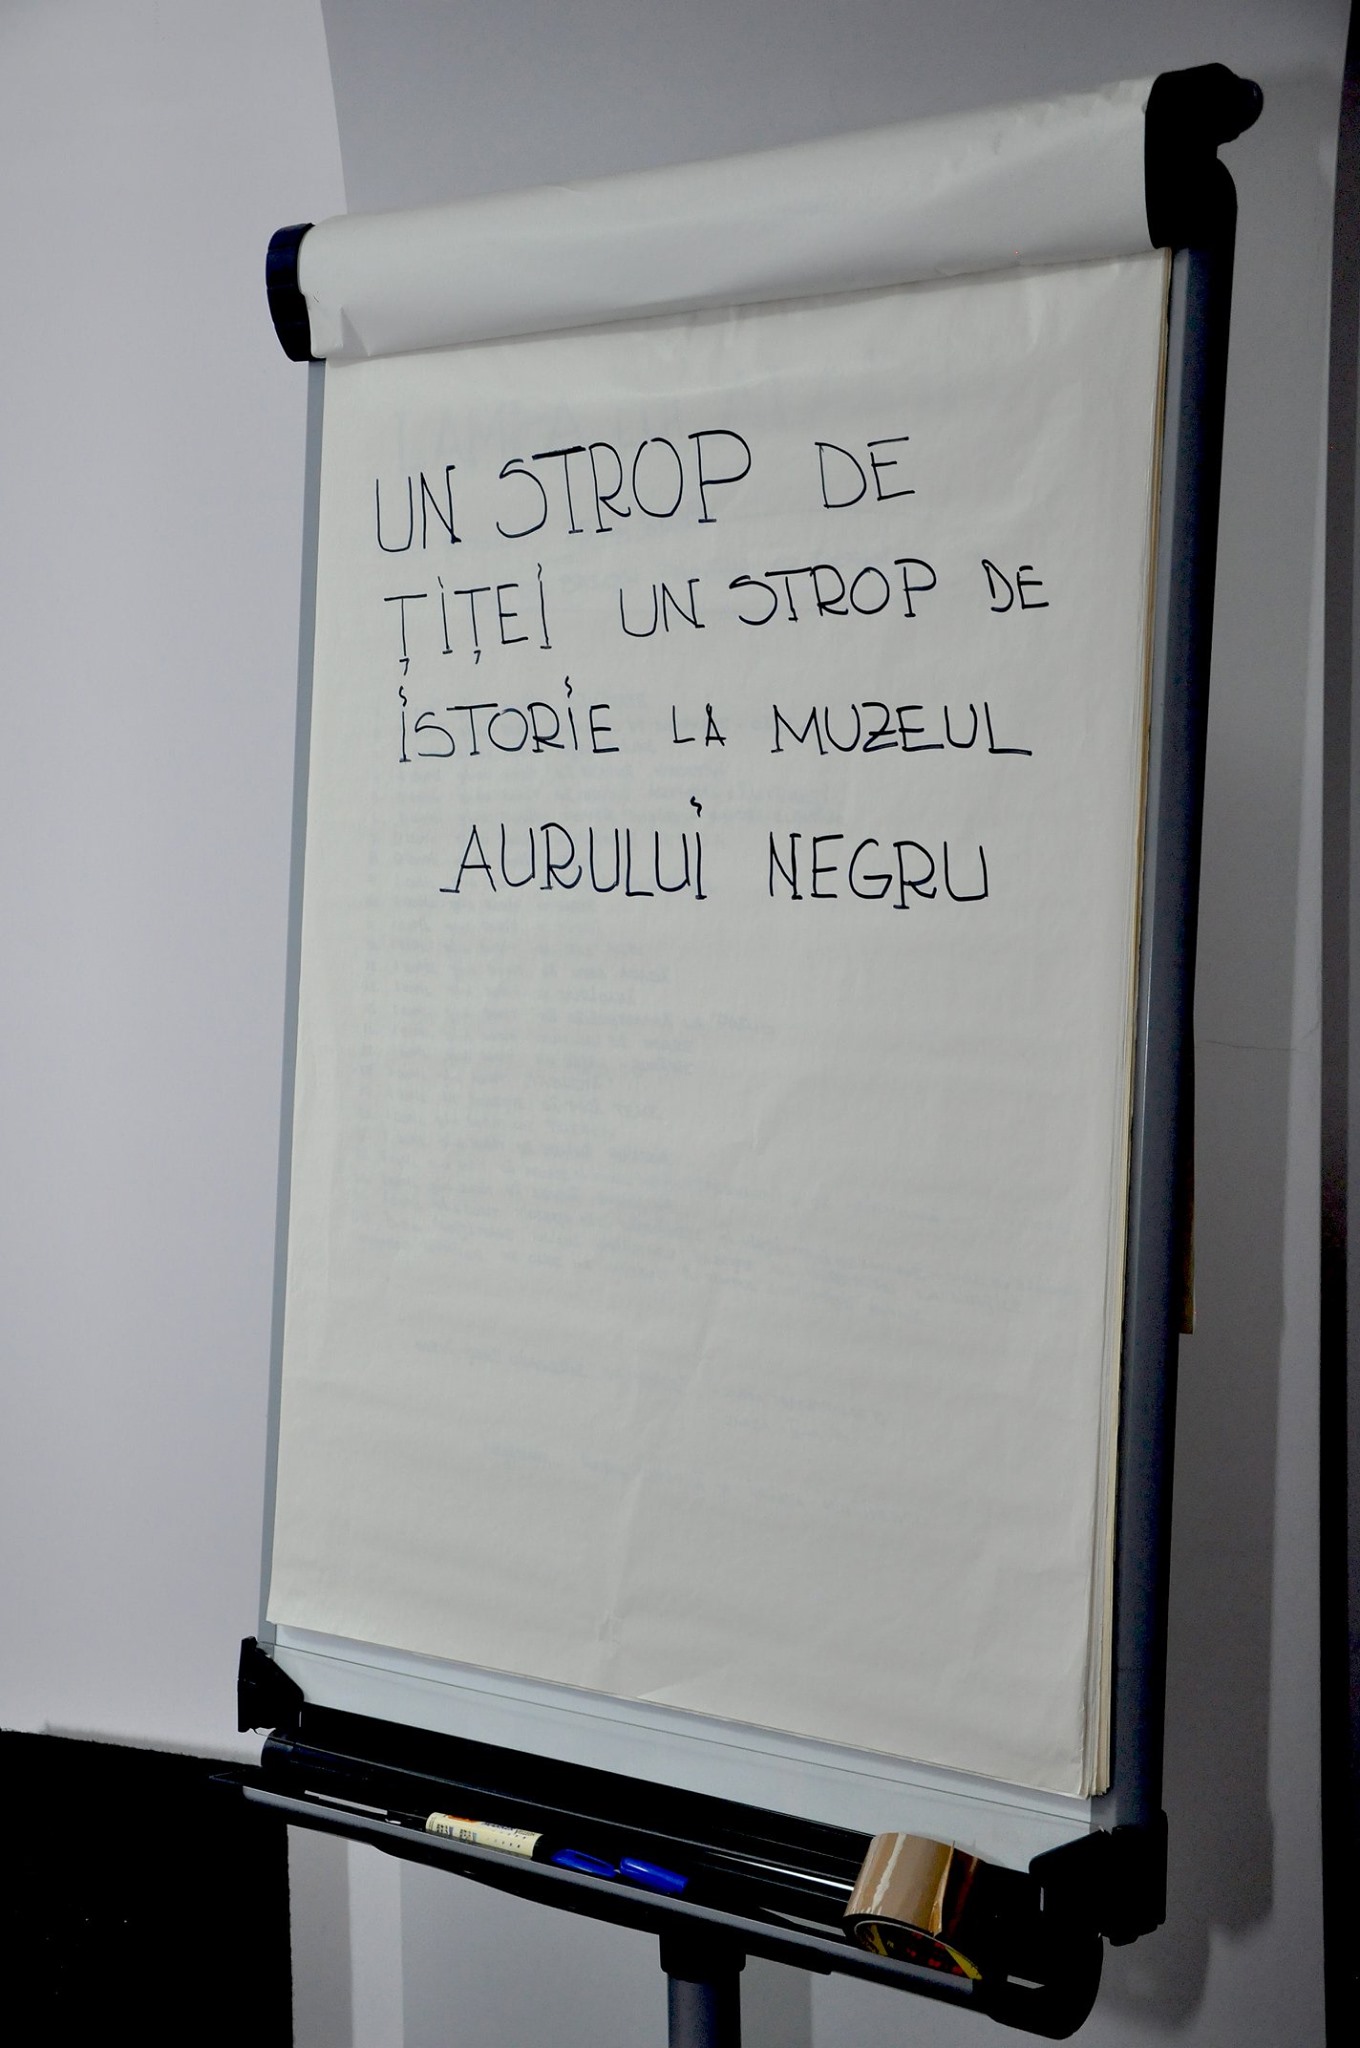 UN STROP DE
ȚIȚEI UN STROP DE
ISTORIE LA MUZEUL
AURULUI NEGRU